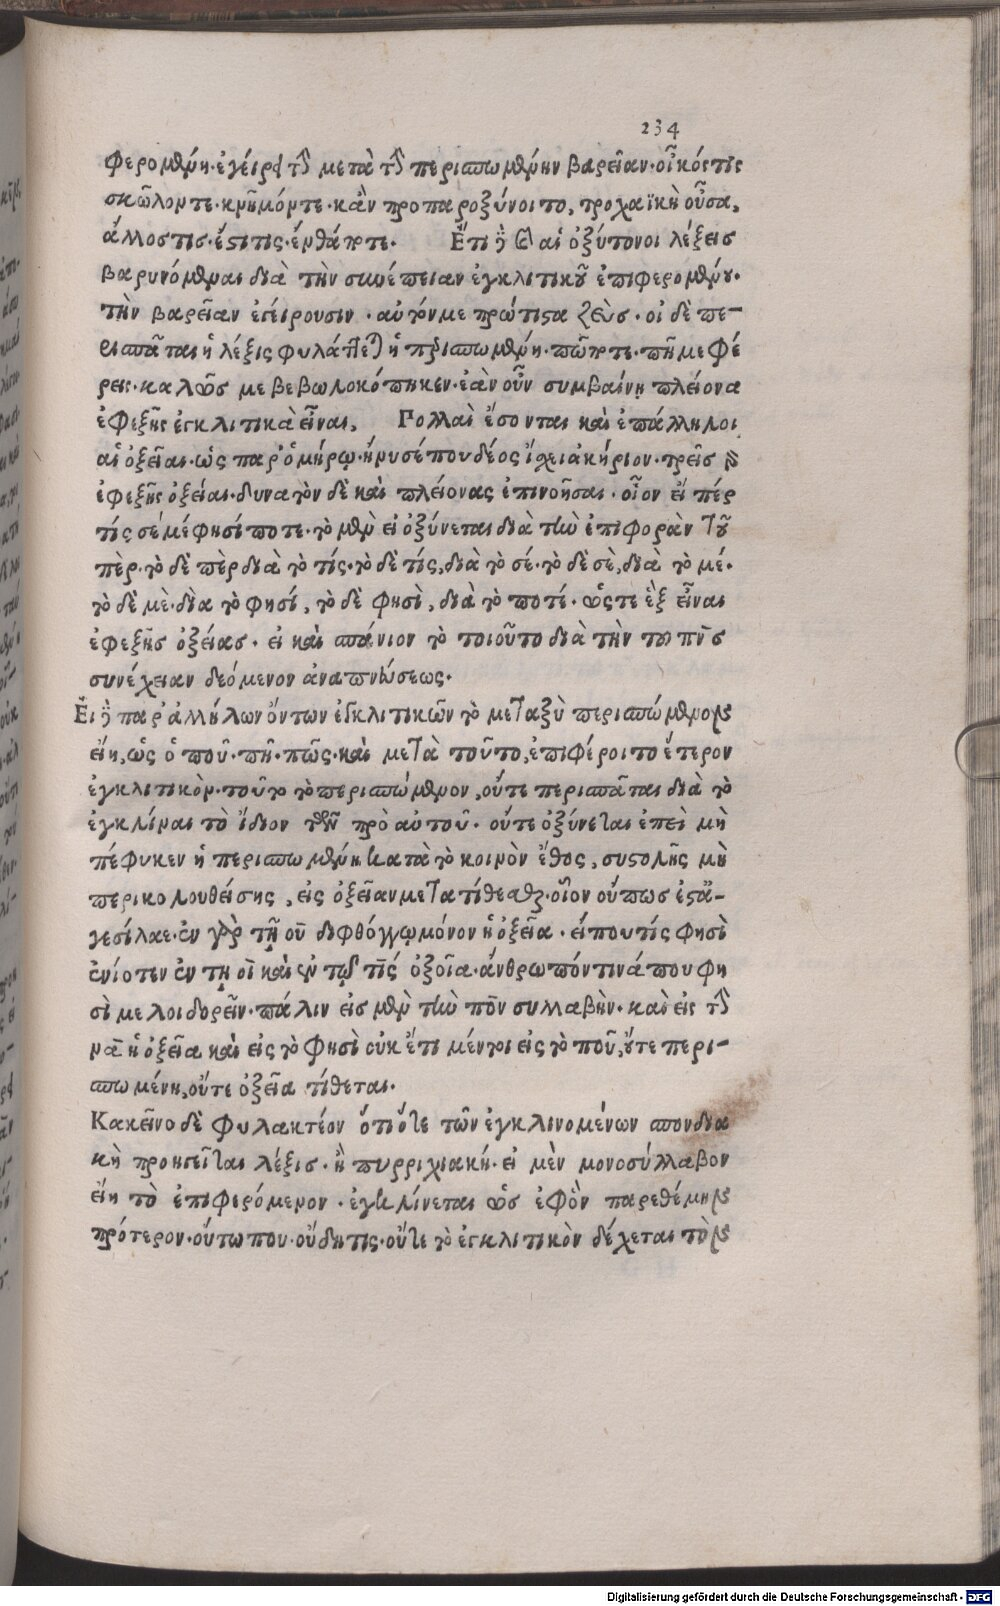 234
φερομένη· ἐγείρει τὴν μετὰ τὴν περισπωμένην βαρεῖαν· οἶκός τις
σκῶλόν τε· κρημνόν τε· κἂν προπαροξύνοιτο, τροχαϊκὴ οὖσα,
ἄλλος τις· ἔστι τις· ἔνθά τε· Ἔτι δὲ καὶ αἱ ὀξύτονοι λέξεις
βαρυνόμεναι διὰ τὴν συνέπειαν ἐγκλιτικοῦ ἐπιφερομένου·
τὴν βαρεῖαν ἐγείρουσιν· αὐτόν με πρώτιστα ζεὺς· οἱ δὲ πε-
ρισπᾶται ἡ λέξις φυλάττεται ἡ περισπωμένη· πῶς τε· πῆ με φέ
ρεις· καλῶς με βεβωλοκόπηκεν· ἐὰν οὖν συμβαίνῃ πλείονα
ἐφεξῆς ἐγκλιτικὰ εἶναι, Πολλαὶ ἔσονται καὶ ἐπάλληλοι
αἱ ὀξεῖαι· ὡς παρ' ὁμήρῳ· ἤ νυ σέ που δέος ἴσχει ἀκήριον· τρεῖς γὰρ
ἐφεξῆς ὀξεῖαι· δυνατὸν δὲ καὶ πλείονας ἐπινοῆσαι· οἷον εἴ πέρ
τίς σέ μέ φησί ποτε· τὸ μὲν εἰ ὀξύνεται διὰ τὴν ἐπιφορὰν τοῦ
πὲρ· τὸ δὲ πὲρ διὰ τὸ τίς· τὸ δὲ τίς, διὰ τὸ σέ· τὸ δὲ σὲ, διὰ τὸ μέ·
τὸ δὲ μὲ· διὰ τὸ φησί, τὸ δὲ φησὶ, διὰ τὸ ποτέ· ὥστε ἓξ εἶναι
ἐφεξῆς ὀξείας· εἰ καὶ σπάνιον τὸ τοιοῦτο διὰ τὴν τοῦ πνς
συνέχειαν δεόμενον ἀναπνεύσεως·
Εἰ δὲ παρ' ἀλλήλων ὄντων ἐγκλιτικῶν τὸ μεταξὺ περισπώμενον
εἴη, ὡς ὁ ποῦ· πῆ· πῶς· καὶ μετὰ τοῦτο, ἐπιφέροιτο ἕτερον
ἐγκλιτικὸν· τοῦτο τὸ περισπώμενον, οὔτε περισπᾶται διὰ τὸ
ἐγκλῖναι τὸ ἴδιον τόνον πρὸ αὐτοῦ· οὔτε ὀξύνεται ἐπεὶ μὴ
πέφυκεν ἡ περισπωμένη κατὰ τὸ κοινὸν ἔθος, συστολῆς μὴ
περικολουθείσης, εἰς ὀξεῖαν μετατίθεσθαι· οἷον οὔ πως ἐστ' ἀ-
γεσίλαε· ἐν γὰρ τῇ οὐ διφθόγγῳ μόνον ἡ ὀξεῖα· εἴ που τίς φησὶ
ἐνίοτεν ἐν τῇ οἳ καὶ ἐν τῷ τὶς ὀξεῖα· ἄνθρωπόν τινά που φη
σὶ με λοιδορεῖν· πάλιν εἰς μὲν τὴν πὸν συλλαβὴν· καὶ εἰς τὴν
νᾶ ἡ ὀξεῖα καὶ εἰς τὸ φησὶ οὐκ ἔτι μέντοι εἰς τὸ ποῦ, οὔτε περι-
σπωμένη, οὔτε ὀξεῖα τίθεται·
Κακεῖνο δὲ φυλακτέον ὅτι ὅτε τῶν ἐγκλινομένων σπονδια
κὴ προηγεῖται λέξις· ἢ πυρριχιακή· εἰ μὲν μονοσύλλαβον
εἴη τὸ ἐπιφερόμενον· ἐγκλίνεται ὡς ἐφὸν παρεθέμην
πρότερον· οὕτω που· οὔδη τις· οὔτε τὸ ἐγκλιτικὸν δέχεται τὸν
Digitalisierung gefördert durch die Deutsche Forschungsgemeinschaft - DFG